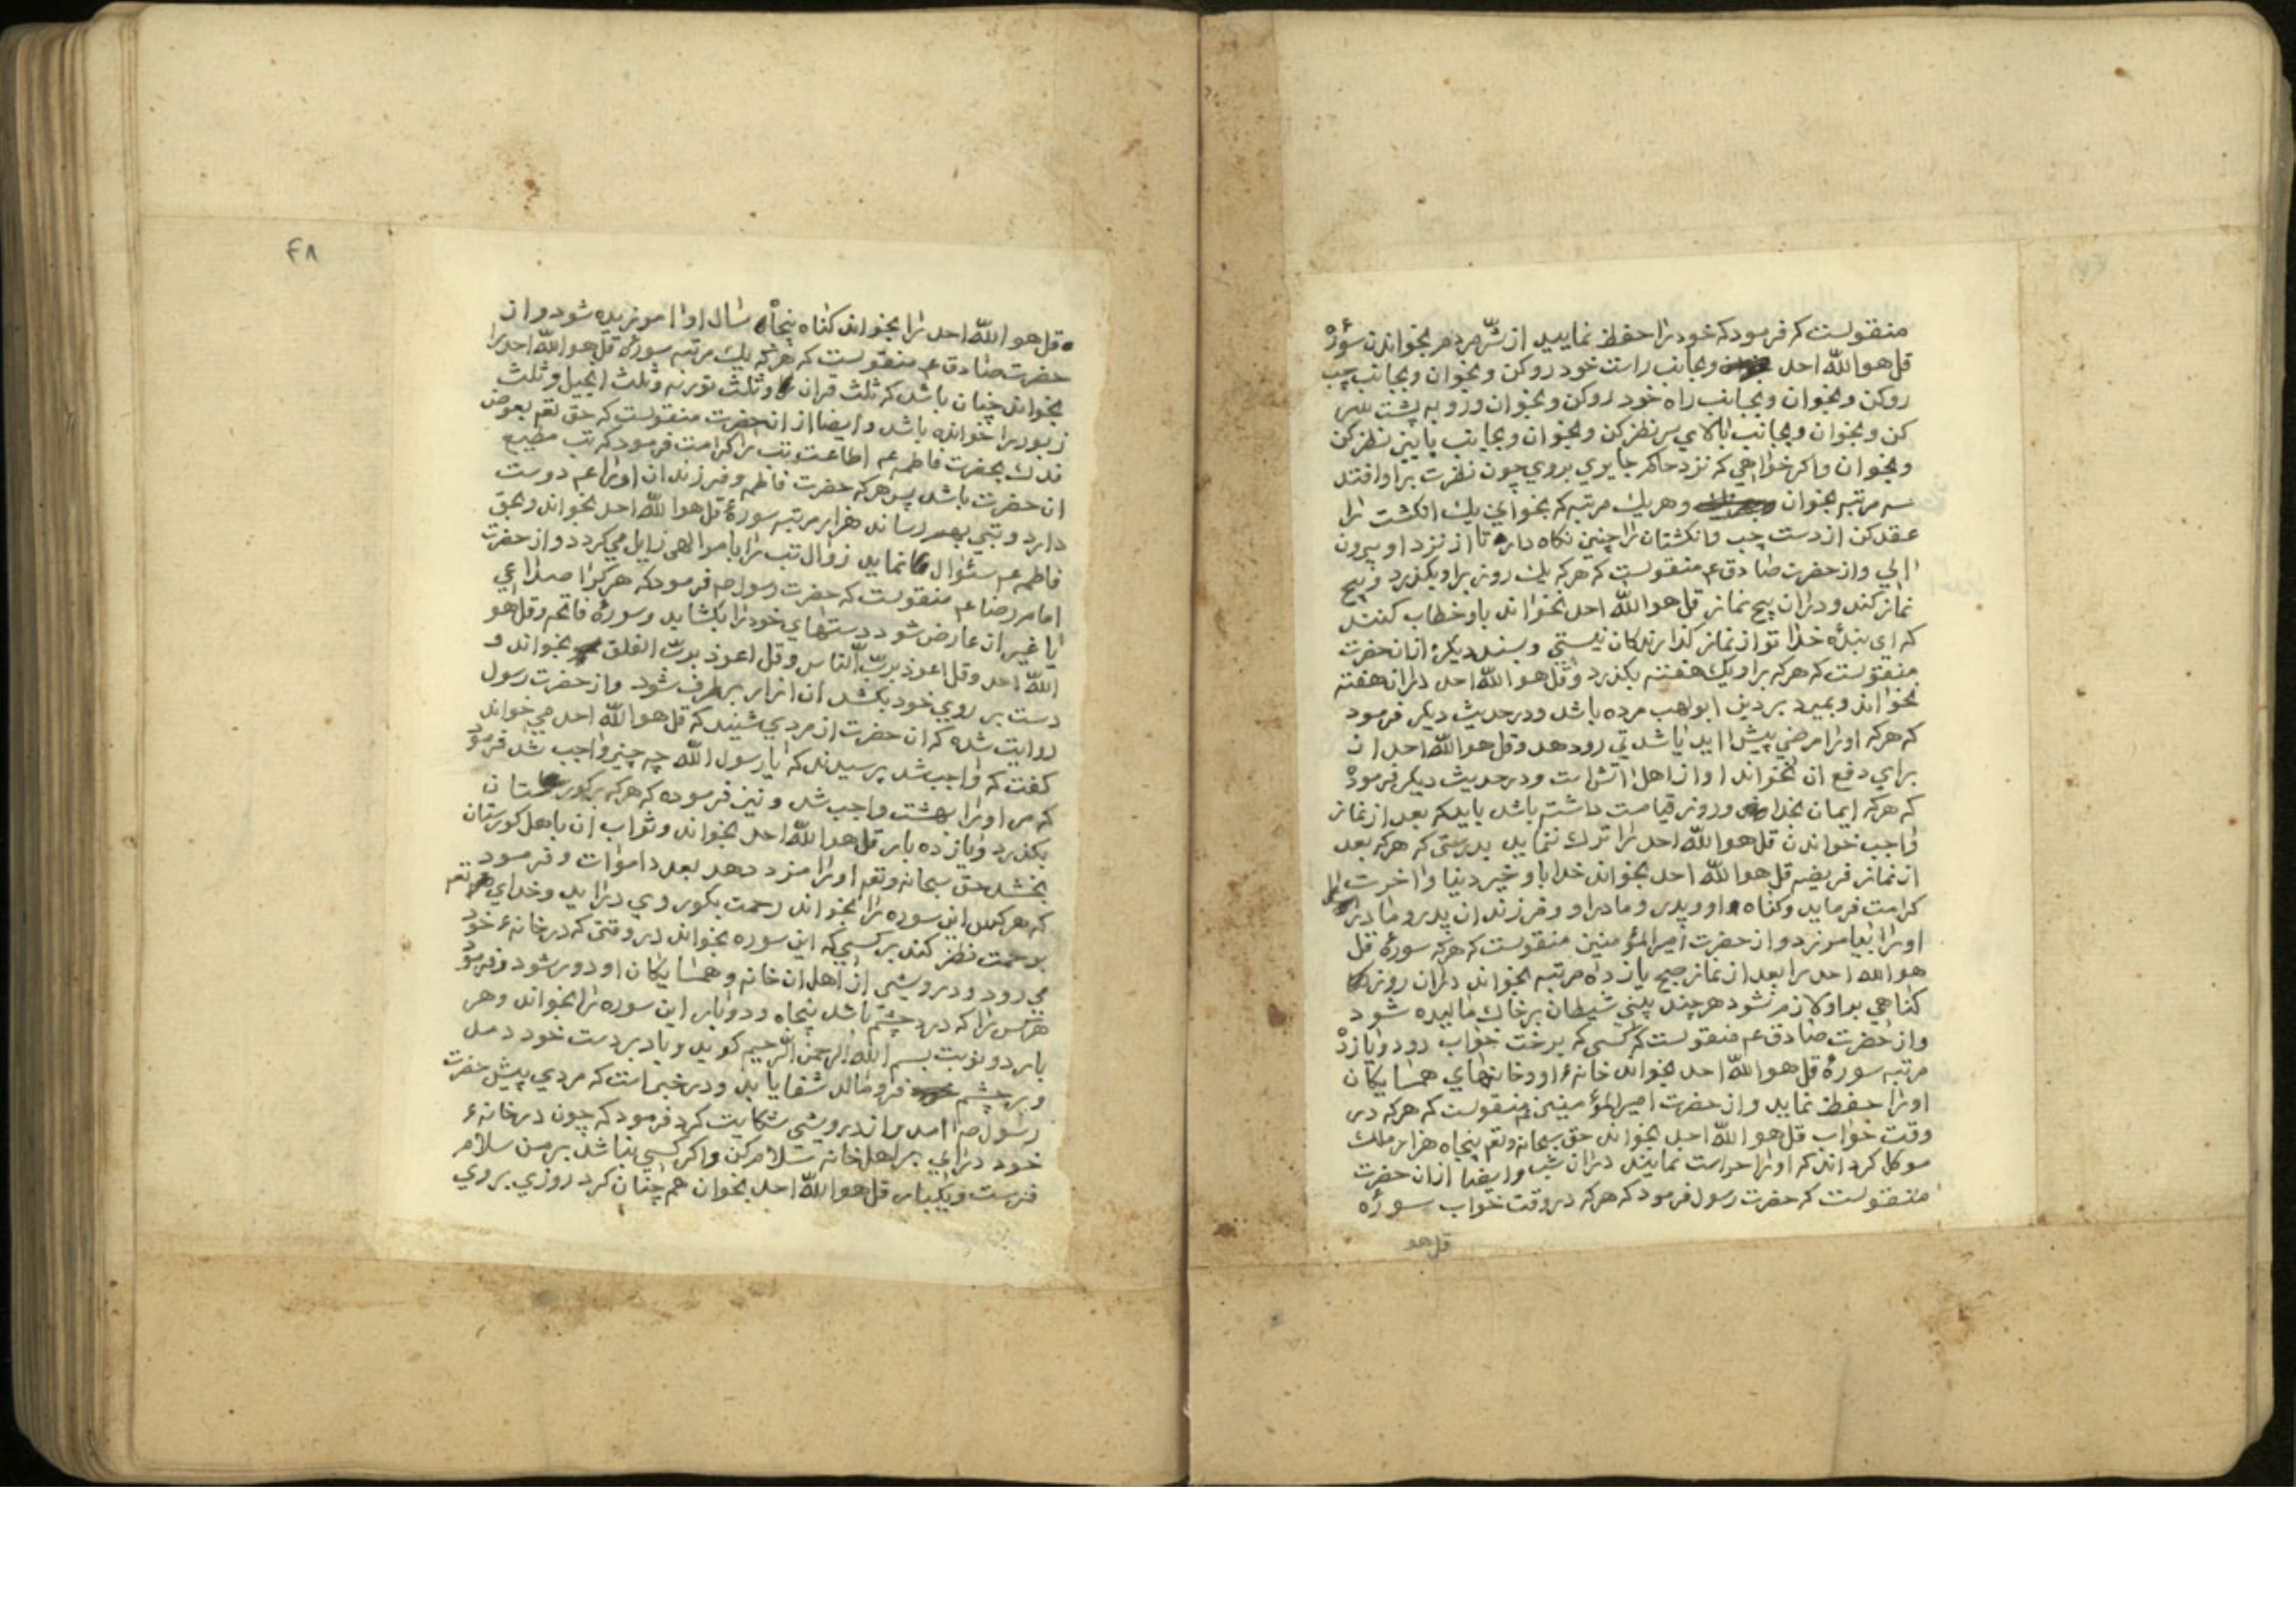 منقولست که فرمود که خود را حفظ نمایید از شر مردم بخواندن سوره
قل هو الله احد و بجانب راست خود رو کن و بخوان و بجانب چپ
رو کن و بخوان و بجانب راه خود رو کن و بخوان و رو به پشت سر
کن و بخوان و بجانب بالای سر نظر کن و بخوان و بجانب پایین نظر کن
و بخوان و اکر خواهی که نزد حاکم جایری بروی چون نظرت بر او افتد
سه مرتبه بخوان و هر یک مرتبه که بخوانی یک انکشت را
عقد کن از دست چپ و انکشتان را چنین نکاه دار تا از نزد او بیرون
ایی و از حضرت صادق ع منقولست که هر که یک روز بر او بکذرد و پنج
نماز کند و دران پنج نماز قل هو الله احد نخواند باو خطاب کنند
که ای بنده خدا تو از نماز کذارندکان نیستی و بسند دیکر از ان حضرت
منقولست که هر که بر او یک هفته بکذرد و قل هو الله احد دران هفته
نخواند و بمیرد بر دین ابو لهب مرده باشد و در حدیث دیکر فرمود
که هر که او را مرضی پیش اید یا شدتی رو دهد و قل هو الله احد ان
برای دفع ان نخواند او از اهل اتش است و در حدیث دیکر فرمود
که هر که ایمان بخدا و روز قیامت داشته باشد باید که بعد از نماز
واجب خواندن قل هو الله احد را ترک ننماید بدرستی که هر که بعد
از نماز فریضه قل هو الله احد بخواند خدا باو خیر دنیا و اخرت را
کرامت فرماید و کناه او و پدر و مادر او و فرزندان پدر و مادر
او را بیامرزد و از حضرت امیرالمؤمنین منقولست که هر که سوره قل
هو الله احد را بعد از نماز صبح یازده مرتبه بخواند دران روز
کناهی بر او لازم نشود هر چند بینی شیطان بر خاک مالیده شود
و از حضرت صادق ع منقولست که کسی که برخت خواب رود و یازده
مرتبه سورهٔ قل هو الله احد بخواند خانهٔ او و خانهای همسایکان
او را حفظ نماید و از حضرت امیرالمؤمنین منقولست که هر که در
وقت خواب قل هو الله احد بخواند حق سبحانه و تعم پنجاه هزار ملک
موکل کرداند که او را حراست نمایند دران شب و ایضا از ان حضرت
منقولست که حضرت رسول فرمود که هر که در وقت خواب سوره
قل هو
۴۸
قل هو الله احد را بخواند کناه پنجاه سال او امرزیده شود و از
حضرت صادق ع منقولست که هر که یک مرتبه سوره قل هو الله احد را
بخواند چنان باشد که ثلث قران و ثلث توریه و ثلث انجیل و ثلث
زبور را خوانده باشد و ایضا از ان حضرت منقولست که حق تعم بعوض
فدک بحضرت فاطمه ع اطاعت تب را کرامت فرمود که تب مطیع
ان حضرت باشد پس هر که حضرت فاطمه و فرزندان او را ع دوست
دارد و تبی بهم رساند هزار مرتبه سورهٔ قل هو الله احد بخواند و بحق
فاطمه ع سئوال نماید زوال تب را بامر الهی زایل می کردد و از حضرت
امام رضا ع منقولست که حضرت رسول ص فرمود که هر کرا صداعی
یا غیر ان عارض شود دستهای خود را بکشاید و سوره فاتحه و قل هو
الله احد و قل اعوذ برب الناس و قل اعوذ برب الفلق بخواند و
دست بر روی خود بکشد ان ازار بر طرف شود و از حضرت رسول
روایت شده که ان حضرت از مردی شنید که قل هو الله احد می خواند
کفت که واجب شد پرسیدند که یا رسول الله چه چیز واجب شد فرمود
که مر او را بهشت واجب شد و نیز فرموده که هر که بر کورستان
بکذرد و یازده بار قل هو الله احد بخواند و ثواب ان باهل کورستان
بخشد حق سبحانه و تعم او را مزد دهد بعدد اموات و فرمود
که هر که این سوره را بخواند رحمت بکور وی دراید و خدای تعم
برحمت نظر کند بر کسی که این سوره بخواند در وقتی که در خانهٔ خود
می رود و درویشی از اهل ان خانه و همسایکان او دور شود و فرمود
هر کس را که درد چشم باشد پنجاه و دو بار این سوره را بخواند و هر
بار دو نوبت بسم الله الرحمن الرحیم کوید و باد بر دست خود دمد
و بر چشم فرو مالد شفا یابد و در خبر است که مردی پیش حضرت
رسول ص امد و از درویشی شکایت کرد فرمود که چون در خانهٔ
خود درای بر اهل خانه سلام کن و اکر کسی نباشد بر من سلام
فرست و یکبار قل هو الله احد بخوان هم چنان کرد روزی بر وی